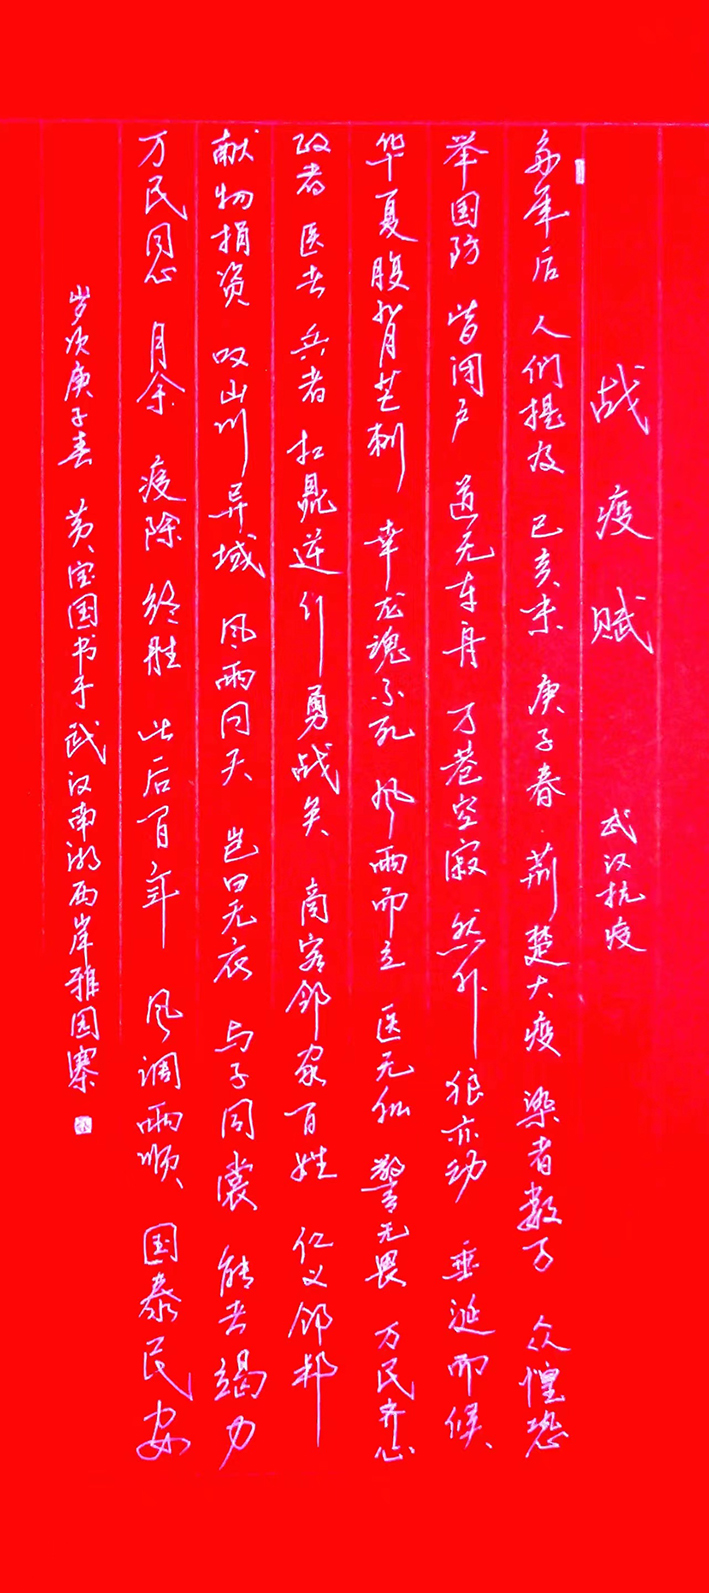 战疫赋 武汉抗疫
多年后 人们提及 己亥末 庚子春 荆楚大疫 染者数万 众惶恐
举国防 皆闭户 道无车舟 万巷空寂 然外 狼亦动 垂涎而候
华夏腹背芒刺 幸龙魂不死 风雨而立 医无私 警无畏 万民齐心
政者 医者 兵者 扛鼎逆行 勇战矣 商客邻家百姓 仁义邻邦
献物捐资 叹山川异域 风雨同天 岂曰无衣 与子同裳 能者竭力
万民同心 月余 疫除 终胜 此后百年 风调雨顺 国泰民安
岁次庚子春 黄宝国书于武汉南湖西岸雅园寨